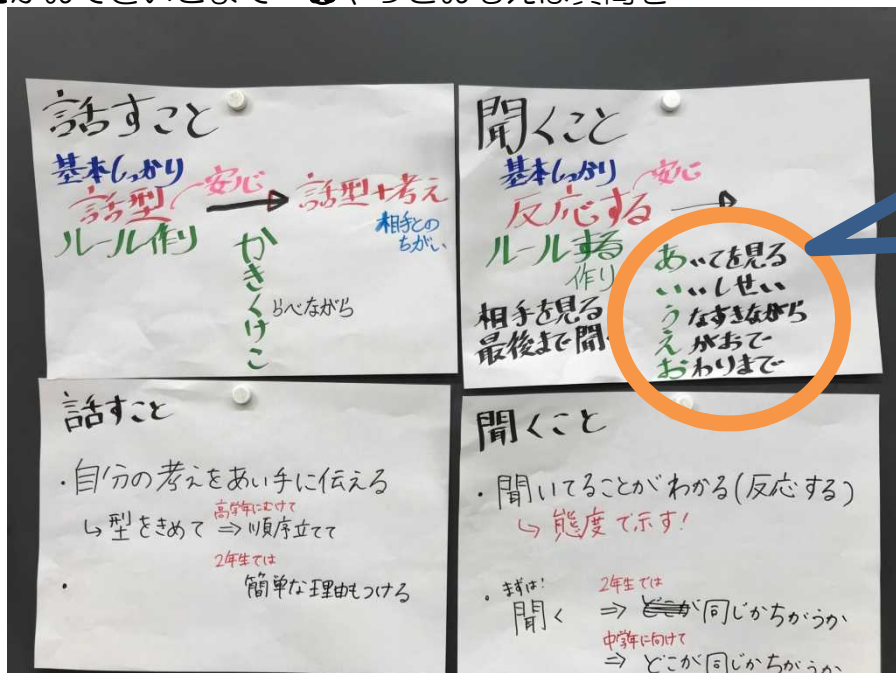 話すこと
基本しっかり
話型 安心 → 話型+考え
ルール作り
相手との
ちがい
か
き
く らべながら
け
こ
聞くこと
基本しっかり
反応する 安心 →
ルールする
作り
相手を見る
最後まで聞
あいてを見る
いいしせい
うなずきながら
えがおで
おわりまで
話すこと
・自分の考えをあい手に伝える
高学年にむけて
↳型をきめて ⇒ 順序立てて
2年生では
・ 簡単な理由もつける
聞くこと
・聞いてることがわかる(反応する)
↳態度で示す!
・まずは! 2年生では
聞く ⇒ どこが同じかちがうか
中学年に向けて
⇒ どこが同じかちがうか